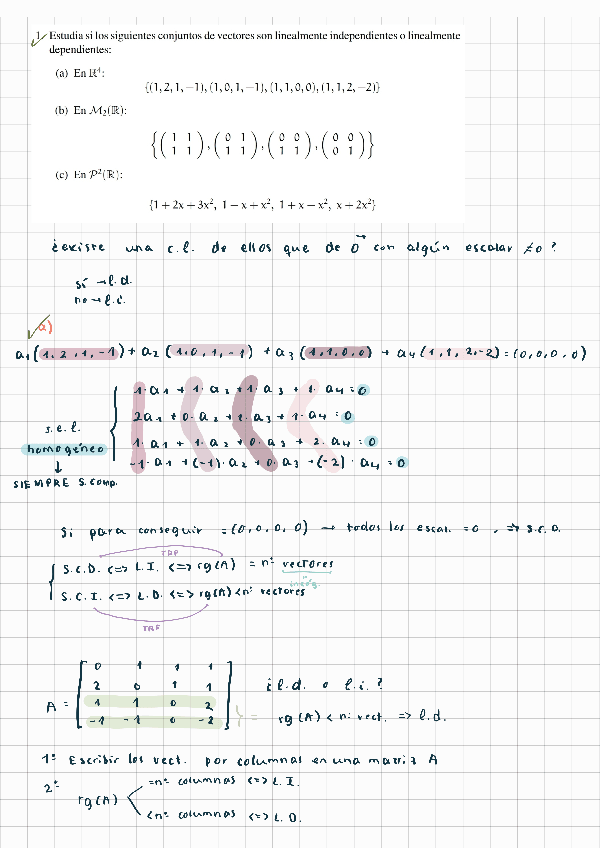 1. Estudia si los siguientes conjuntos de vectores son linealmente independientes o linealmente
dependientes:
(a) En ℝ⁴:
{(1, 2, 1, −1), (1, 0, 1, −1), (1, 1, 0, 0), (1, 1, 2, −2)}
(b) En M₂(ℝ):
{( 1 1 ; 1 1 ), ( 0 1 ; 1 1 ), ( 0 0 ; 1 1 ), ( 0 0 ; 0 1 )}
(c) En P²(ℝ):
{1 + 2x + 3x², 1 − x + x², 1 + x − x², x + 2x²}
¿existe una c.l. de ellos que de 0⃗ con algún escalar ≠0?
sí → l.d.
no → l.i.
a)
a₁(1,2,1,-1) + a₂(1,0,1,-1) + a₃(1,1,0,0) + a₄(1,1,2,-2) = (0,0,0,0)
1·a₁ + 1·a₂ + 1·a₃ + 1·a₄ = 0
2a₁ + 0·a₂ + 1·a₃ + 1·a₄ = 0
s.e.l.
1·a₁ + 1·a₂ + 0·a₃ + 2·a₄ = 0
homogéneo
-1·a₁ + (-1)·a₂ + 0·a₃ + (-2)·a₄ = 0
↓
SIEMPRE S.Comp.
Si para conseguir =(0,0,0,0) → todos los escal. =0, => S.C.D.
TRF
S.C.D. <=> L.I. <=> rg(A) = nº vectores
incóg.
S.C.I. <=> L.D. <=> rg(A) < nº vectores
TRF
A = [ 0 1 1 1
2 0 1 1 ¿l.d. o l.i.?
1 1 0 2
-1 -1 0 -2 ] } = rg(A) < nº vect. => l.d.
1º Escribir los vect. por columnas en una matriz A
2º rg(A) =nº columnas <=> L.I.
<nº columnas <=> L.D.